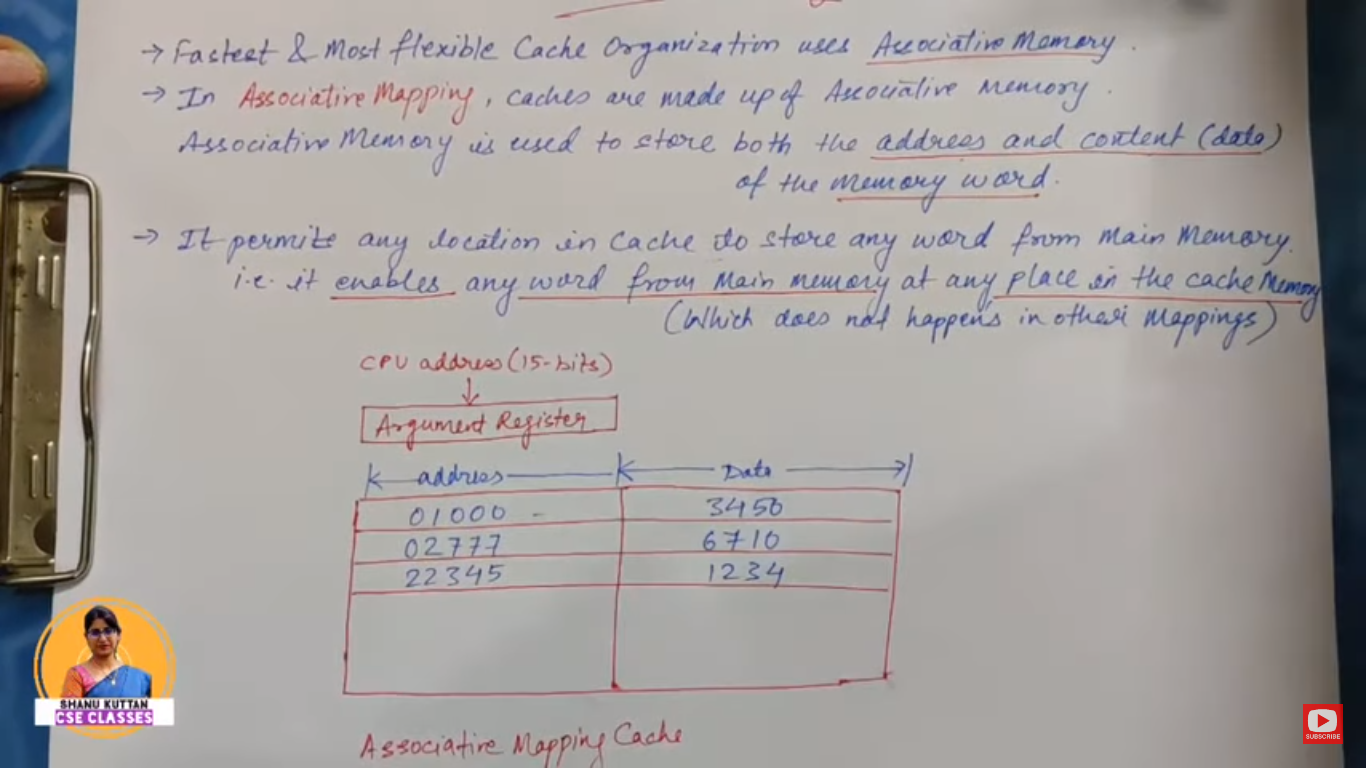 → Fastest & Most flexible Cache Organization uses Associative Memory.
→ In Associative Mapping, caches are made up of Associative Memory.
Associative Memory is used to store both the address and content (data)
of the Memory word.
→ It permits any location in Cache to store any word from Main Memory.
i.e. it enables any word from Main memory at any place in the cache Memory
(Which does not happens in other Mappings)
CPU address (15-bits)
↓
Argument Register
address Data
01000 - 3450
02777 6710
22345 1234
Associative Mapping Cache
SHANU KUTTAN
CSE CLASSES
SUBSCRIBE